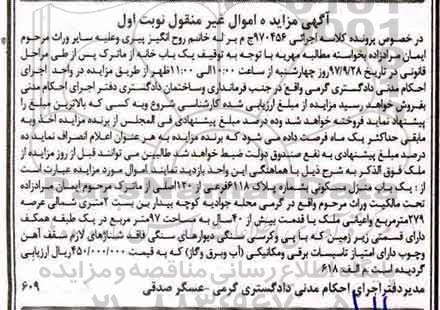 آگهی مزایده اموال غیر منقول نوبت اول
در خصوص پرونده کلاسه اجرائی ۹۷۰۴۵۶ج م بر له خانم روح انگیز پیری وعلیه سایر وراث مرحوم
ایمان مرادزاده بخواسته مطالبه مهریه با توجه به توقیف یک باب خانه از ماترک پس از طی مراحل
قانونی در تاریخ ۹۷/۹/۲۸روز چهارشنبه از ساعت ۱۰:۰۰الی ۱۱:۰۰ظهر از طریق مزایده در واحد اجرای
احکام مدنی دادگستری گرمی واقع در جنب فرمانداری وساختمان دادگستری دفتر اجرای احکام مدنی
بفروش خواهد رسید مزایده از مبلغ ارزیابی شده کارشناسی شروع وبه کسی که بالاترین مبلغ را
پیشنهاد نماید فروخته خواهد شد وده درصد مبلغ پیشنهادی فی المجلس از برنده مزایده اخذ وبه
مابقی حداکثر یک ماه فرصت داده می شود که برنده مزایده به هر عنوان اعلام انصراف نماید ده
درصد مبلغ پیشنهادی به نفع صندوق دولت ضبط خواهد شد، طالبین می توانند قبل از روز مزایده از
ملک فوق الذکر به شرح ذیل با هماهنگی این واحد بازدید نمایند اموال مورد مزایده عبارت است
از : یک باب منزل مسکونی بشماره پلاک ۶۱۱۸فرعی از ۱۳۰اصلی از ماترک مرحوم ایمان مرادزاده
تحت مالکیت وراث مرحوم واقع در گرمی محله جوادیه کوچه بیدار بن بست ۲متری شمالی عرصه
۲۷۹مترمربع واعیانی ملک با قدمت بیش از ۴۰سال به مساحت ۹۷متر مربع در یک طبقه همکف
دارای قسمتی زیر زمین که با پی وکرسی سنگی دیوارهای سنگی فاقد شناژهای لازم سقف آهن
وچوب دارای امتیاز تاسیسات برقی ومکانیکی (آب وبرق وگاز) که به قیمت ۴۵۰/۰۰۰/۰۰۰ریال ارزیابی
گردیده است .م الف ۶۱۸
مدیردفتراجرای احکام مدنی دادگستری گرمی -عسگر صدقی ۶۰۹